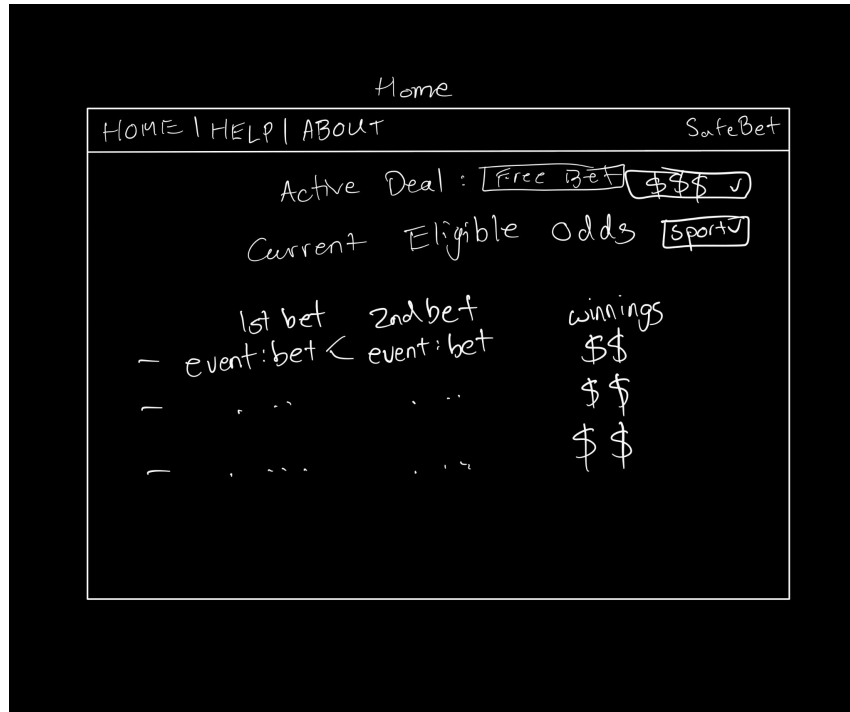 Home
HOME | HELP | ABOUT SafeBet
Active Deal : Free Bet $$$
Current Eligible Odds Sport
1st bet 2nd bet winnings
- event:bet < event:bet $$
- . .. . .. $$
- . ... . .. $$